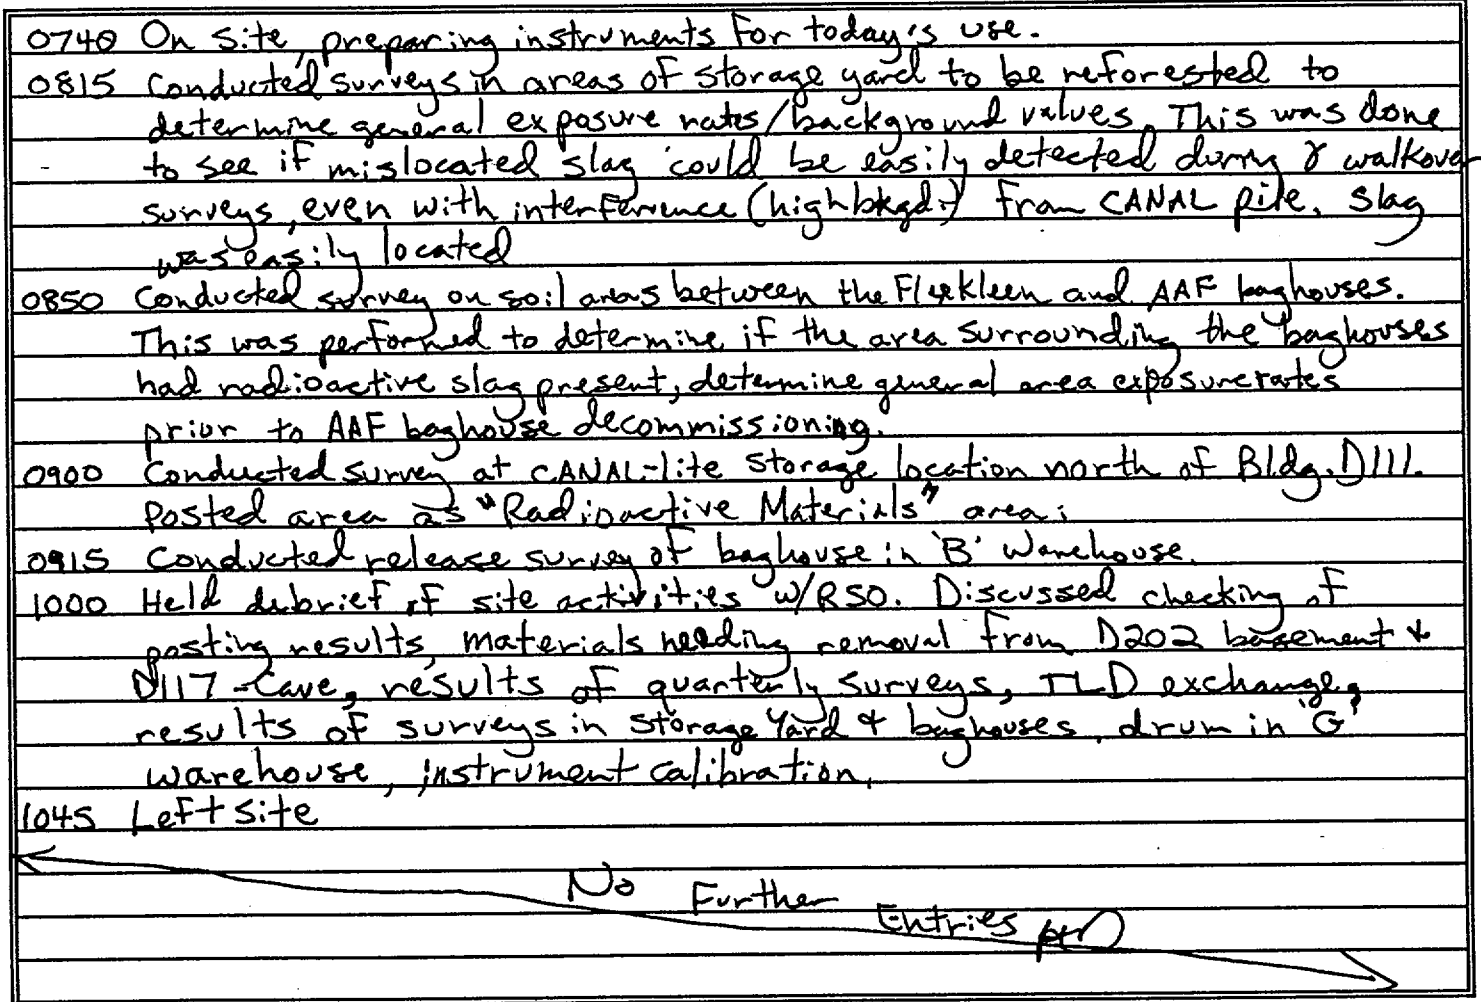 0740 On site, preparing instruments for today's use.
0815 Conducted surveys in areas of storage yard to be reforested to
determine general exposure rates/background values. This was done
to see if mislocated slag could be easily detected during γ walkover
surveys, even with interference (high bkgd.) from CANAL pile. Slag
was easily located
0850 Conducted survey on soil areas between the Flexkleen and AAF baghouses.
This was performed to determine if the area surrounding the baghouses
had radioactive slag present, determine general area exposure rates
prior to AAF baghouse decommissioning.
0900 Conducted survey at CANAL-lite storage location north of Bldg. D111.
Posted area as "Radioactive Materials" area.
0915 Conducted release survey of baghouse in 'B' Warehouse.
1000 Held debrief of site activities w/RSO. Discussed checking of
posting results, materials needing removal from D202 basement &
D117-Cave, results of quarterly surveys, TLD exchange,
results of surveys in Storage Yard & baghouses, drum in 'G'
warehouse, instrument calibration.
1045 Left site
No Further
Entries